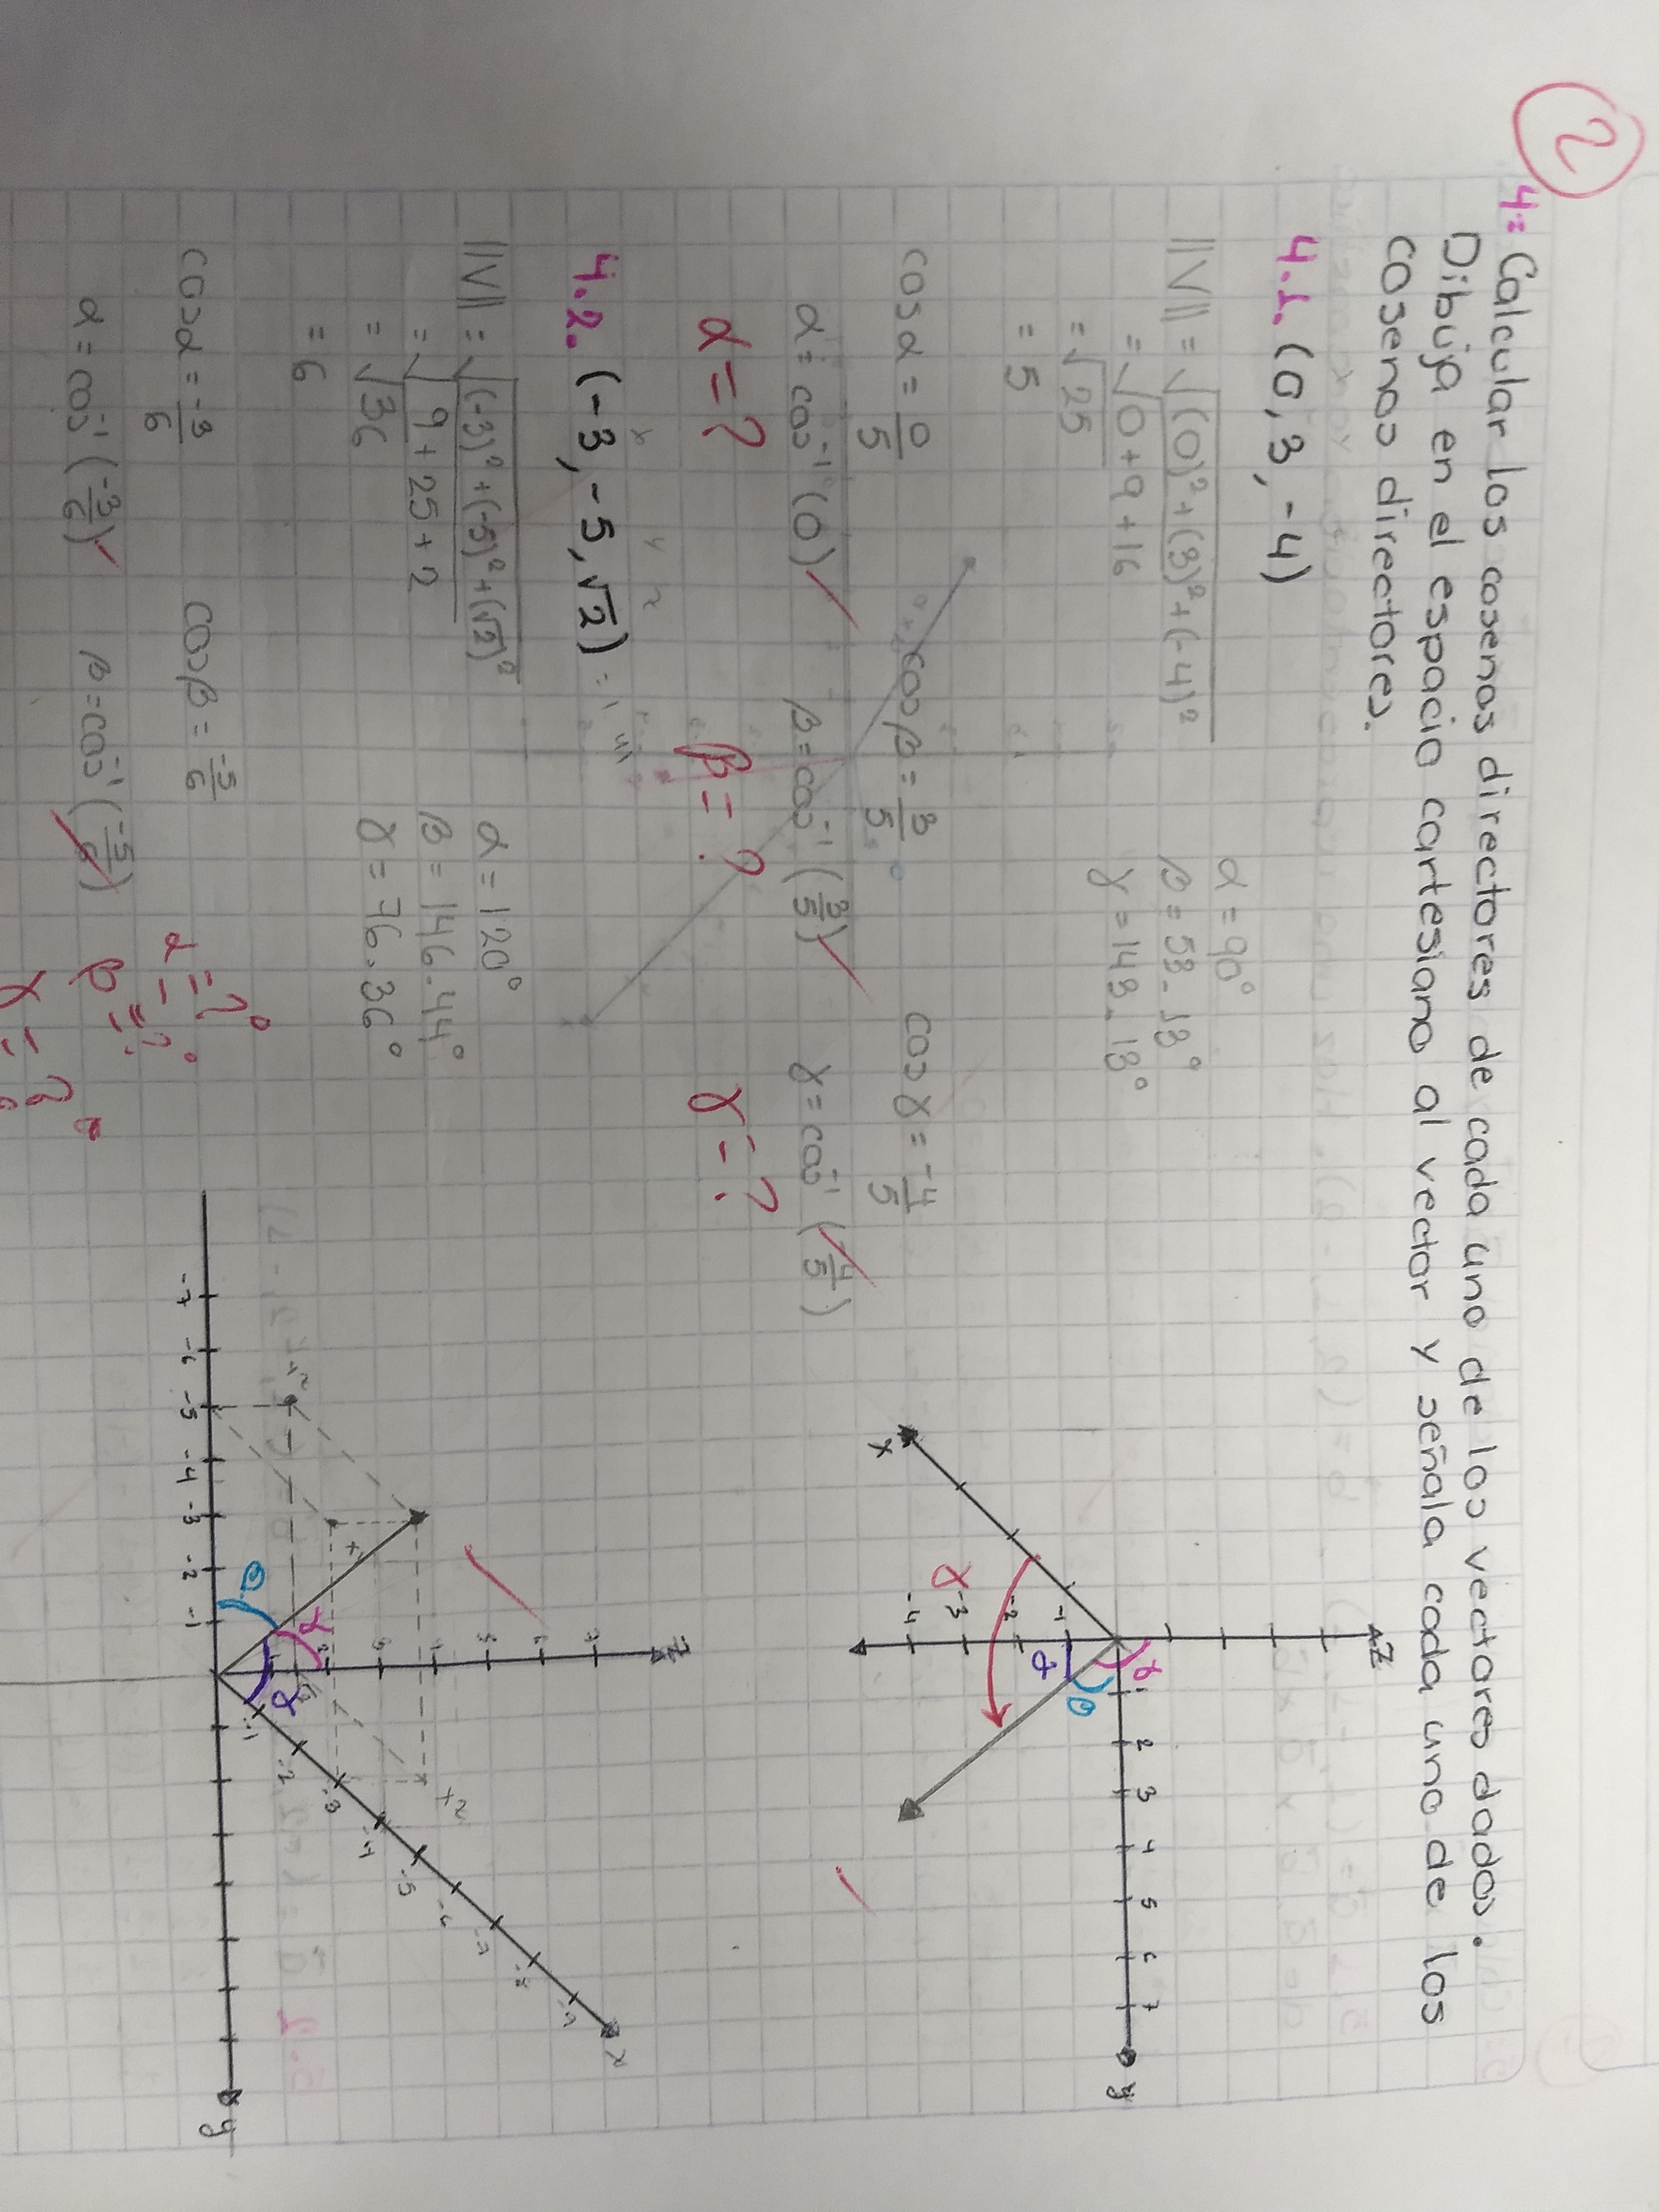 2
4= Calcular los cosenos directores de cada uno de los vectores dados.
Dibuja en el espacio cartesiano al vector y señala cada uno de los
cosenos directores.
4.1. (0, 3, -4)
||V|| = √(0)²+(3)²+(-4)²
= √0+9+16
= √25
= 5
α = 90°
β = 53.13°
γ = 143.13°
cosα = 0/5 cosβ = 3/5 cosγ = -4/5
α = cos⁻¹(0) β = cos⁻¹(3/5) γ = cos⁻¹(-4/5)
α = ? β = ? γ = ?
z
γ 1 2 3 4 5 6 7 y
β
-1
α
-2
γ -3
-4
x
x y z
4.2. (-3, -5, √2)
||V|| = √(-3)²+(-5)²+(√2)²
= √9+25+2
= √36
= 6
α = 120°
β = 146.44°
γ = 76.36°
cosα = -3/6 cosβ = -5/6
α = cos⁻¹(-3/6) β = cos⁻¹(-5/6)
α = ?°
β = ?°
γ = ?°
z
x
7
6
5
4
3
2
1
-1
-2
-3
-4
-5
-6
γ
-7 -6 -5 -4 -3 -2 -1 y